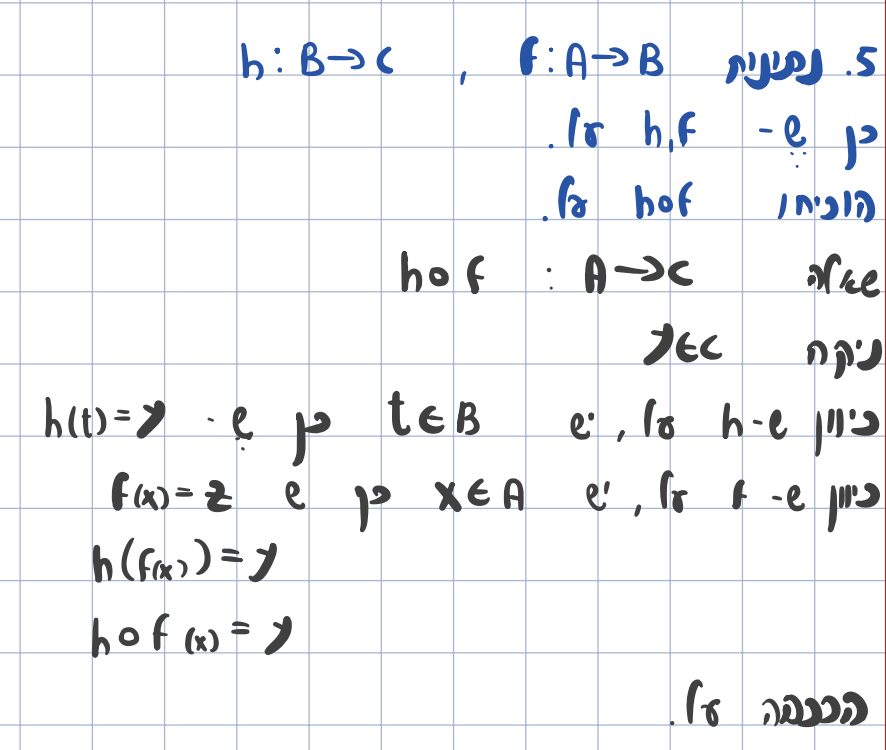 5. נתינות f: A→B , h: B→C
כן ש- h,f על.
הוכיחו hof על.
שאלה hof : A→C
ניקה y∈C
כיוון ש-h על, יש t∈B כן ש- h(t)=y
כיוון ש- f על, יש x∈A כן ש f(x)=z
h(f(x))=y
hof(x)=y
הרכבה על.